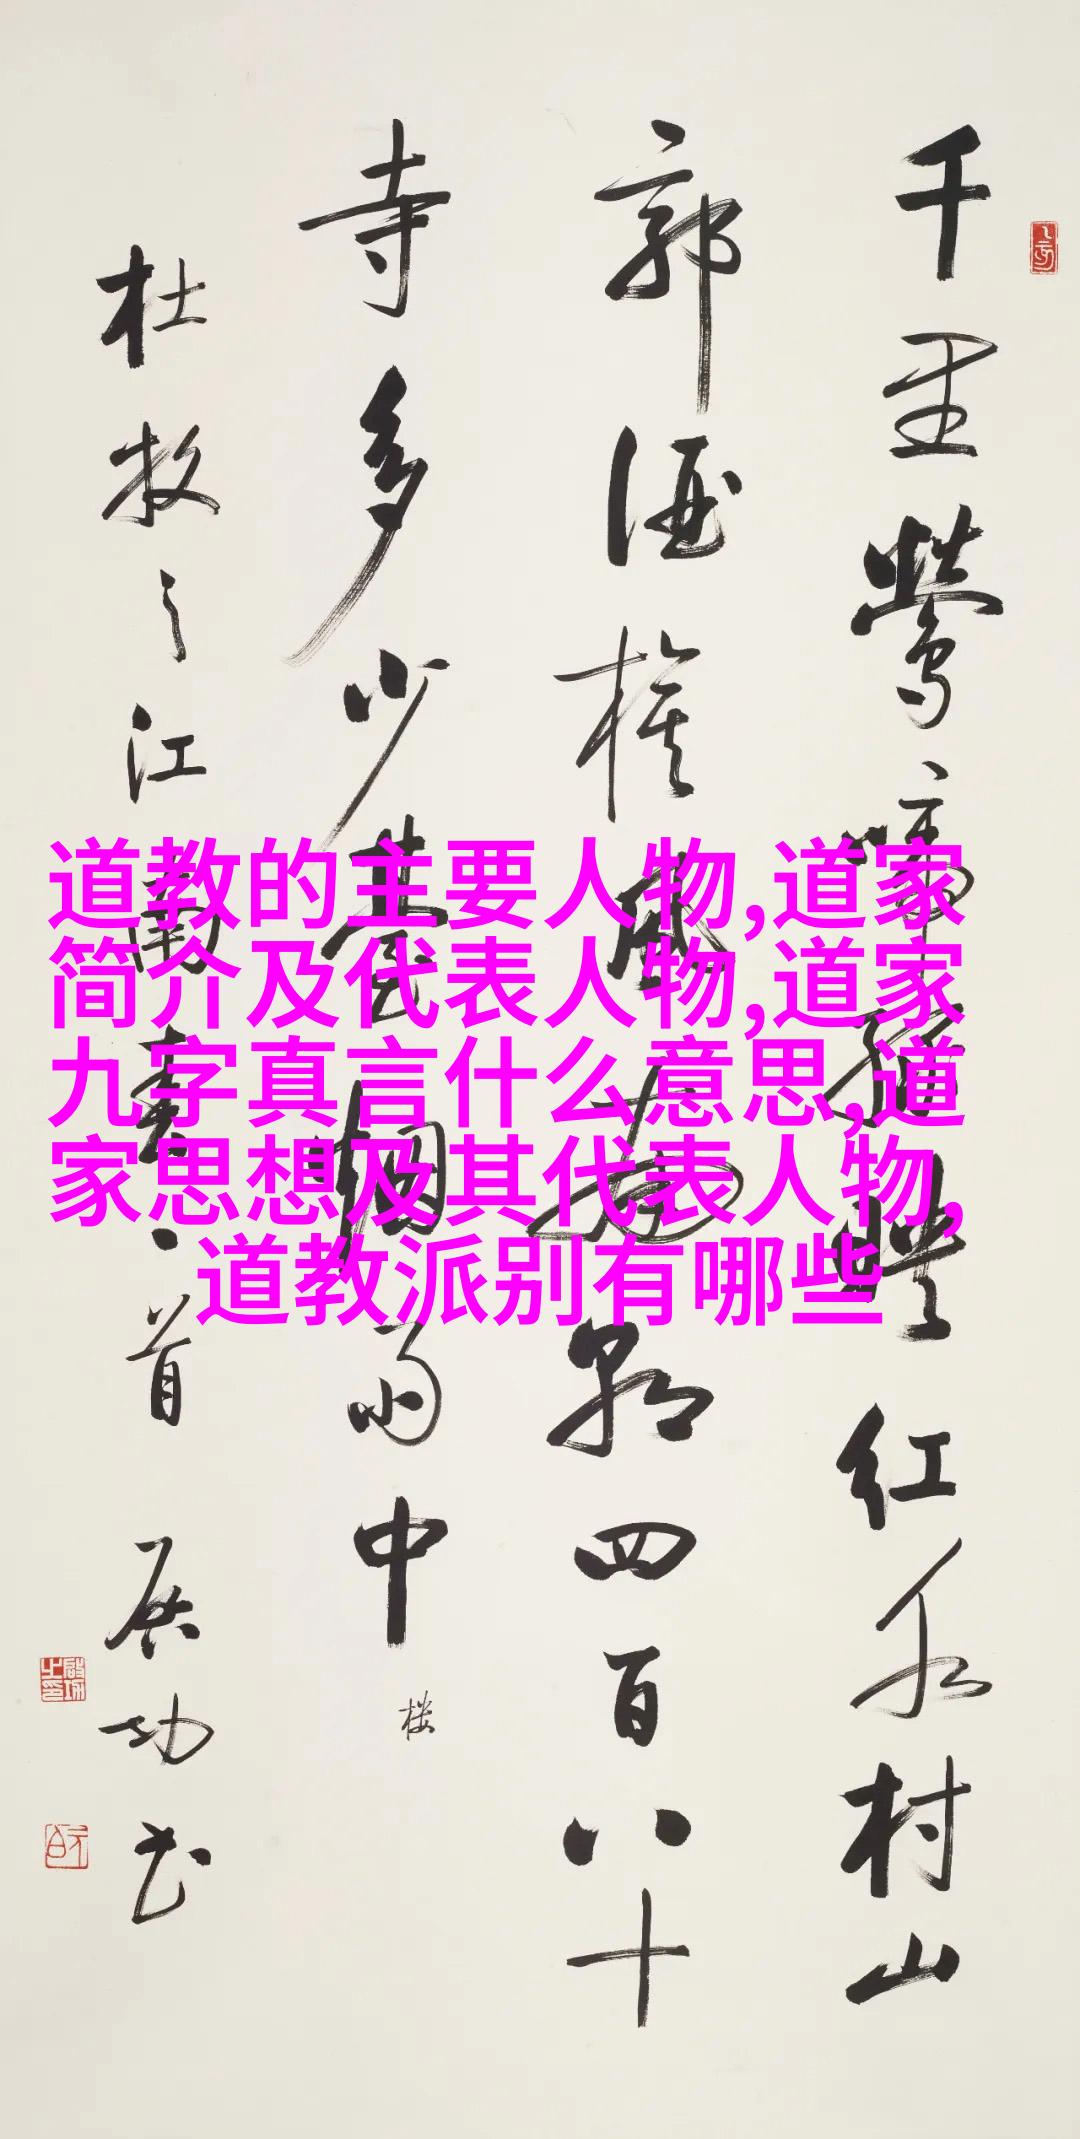 道教的主要人物,道家
简介及代表人物,道家
九字真言什么意思,道
家思想及其代表人物,
道教派别有哪些
千里鶯啼绿映红水村山
郭酒旗風南朝四百八十
寺多少臺烟雨中
楼
杜牧之江南春一首 启功书
啟功之印
元白